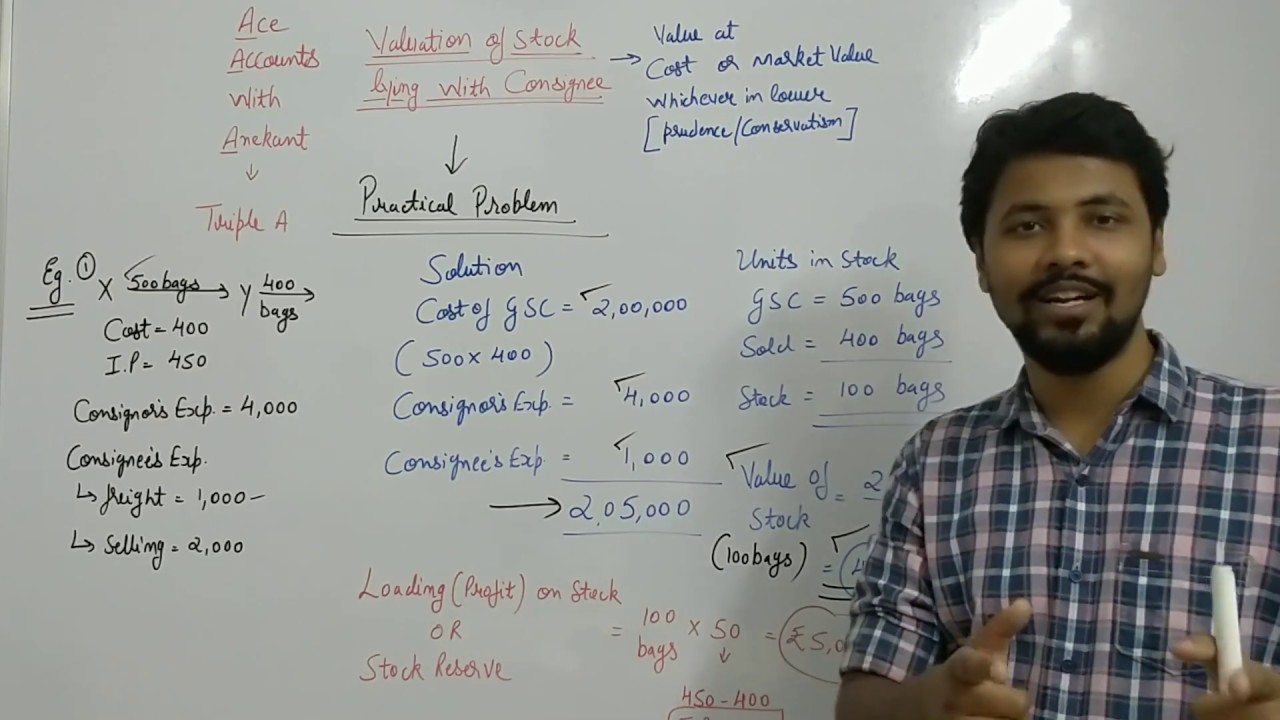 Ace
Accounts
With
Anekant
↓
Triple A
Valuation of Stock
lying With Consignee
→ Value at
Cost or Market Value
Whichever in lower
[prudence/Conservatism]
↓
Practical Problem
Eg. ①
X 500bags → Y 400 bags →
Cost = 400
I.P = 450
Consignor's Exp. = 4,000
Consignee's Exp.
↳ freight = 1,000 –
↳ Selling = 2,000
Solution
Cost of GSC = 2,00,000
(500 x 400)
Consignor's Exp. = 4,000
Consignee's Exp. = 1,000
→ 2,05,000
Units in Stock
GSC = 500 bags
Sold = 400 bags
Stock = 100 bags
Value of Stock = 2
(100bags) =
Loading (Profit) on Stock
OR
Stock Reserve
= 100 bags x 50 = ₹5,0
↓
450 - 400